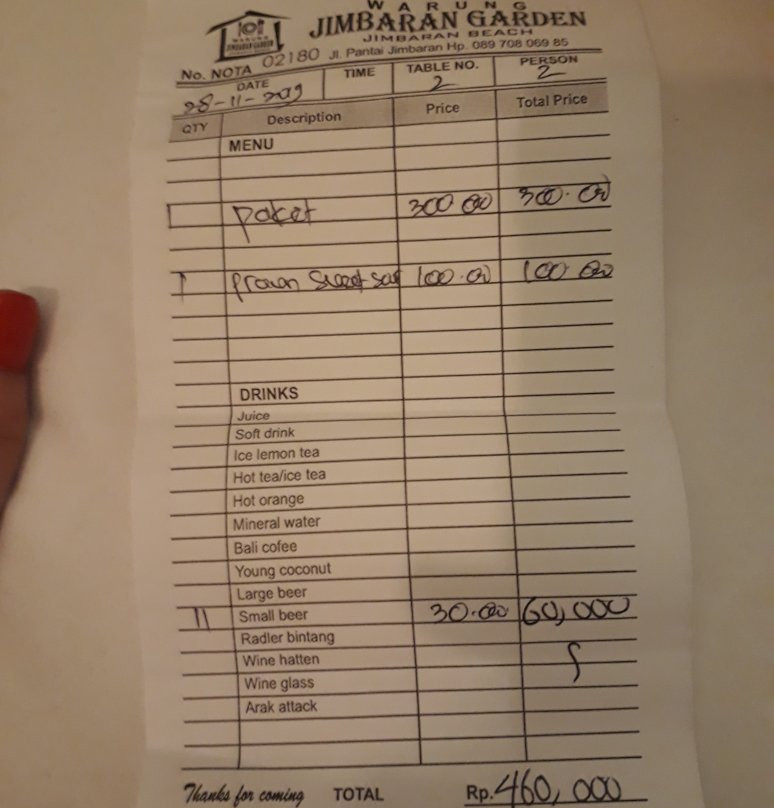 WARUNG
JIMBARAN GARDEN
JIMBARAN BEACH
Jl. Pantai Jimbaran Hp. 089 708 069 85
No. NOTA 02180
DATE TIME TABLE NO. PERSON
28-11-2019 2 2
QTY Description Price Total Price
MENU
1 paket 300.00 300.00
1 prawn sweet sau 100.00 100.00
DRINKS
Juice
Soft drink
Ice lemon tea
Hot tea/ice tea
Hot orange
Mineral water
Bali cofee
Young coconut
Large beer
II Small beer 30.000 60,000
Radler bintang
Wine hatten
Wine glass
Arak attack
Thanks for coming TOTAL Rp. 460,000